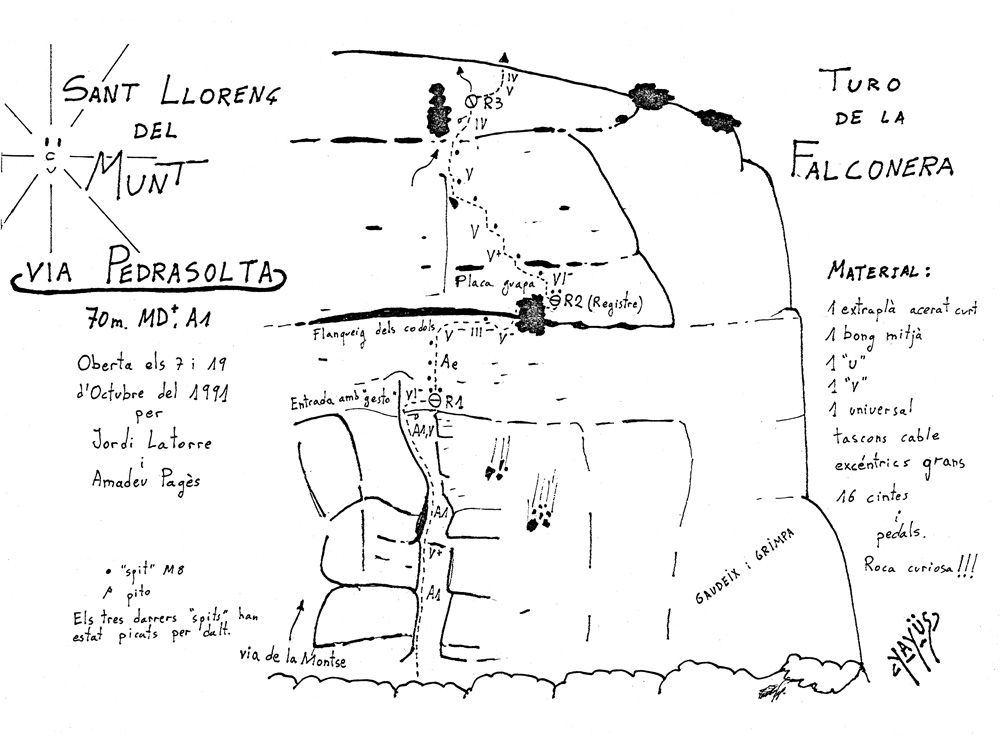 SANT LLORENÇ
DEL
MUNT
VIA PEDRASOLTA
70m. MD+. A1
Oberta els 7 i 19
d'Octubre del 1991
per
Jordi Latorre
i
Amadeu Pagès
• "spit" M8
pito
Els tres darrers "spits" han
estat picats per dalt.
TURO
DE LA
FALCONERA
MATERIAL:
1 extraplà acerat curt
1 bong mitjà
1 "U"
1 "V"
1 universal
tascons cable
excéntrics grans
16 cintes
i
pedals.
Roca curiosa!!!
YAYÜS
IV
V
R3
IV
V
V
V+
VI-
Placa guapa
R2 (Registre)
Flanqueig dels codols
V
III
V
Ae
Entrada amb "gesto"
VI-
R1
A1,V
A1
V+
A1
via de la Montse
GAUDEIX i GRIMPA